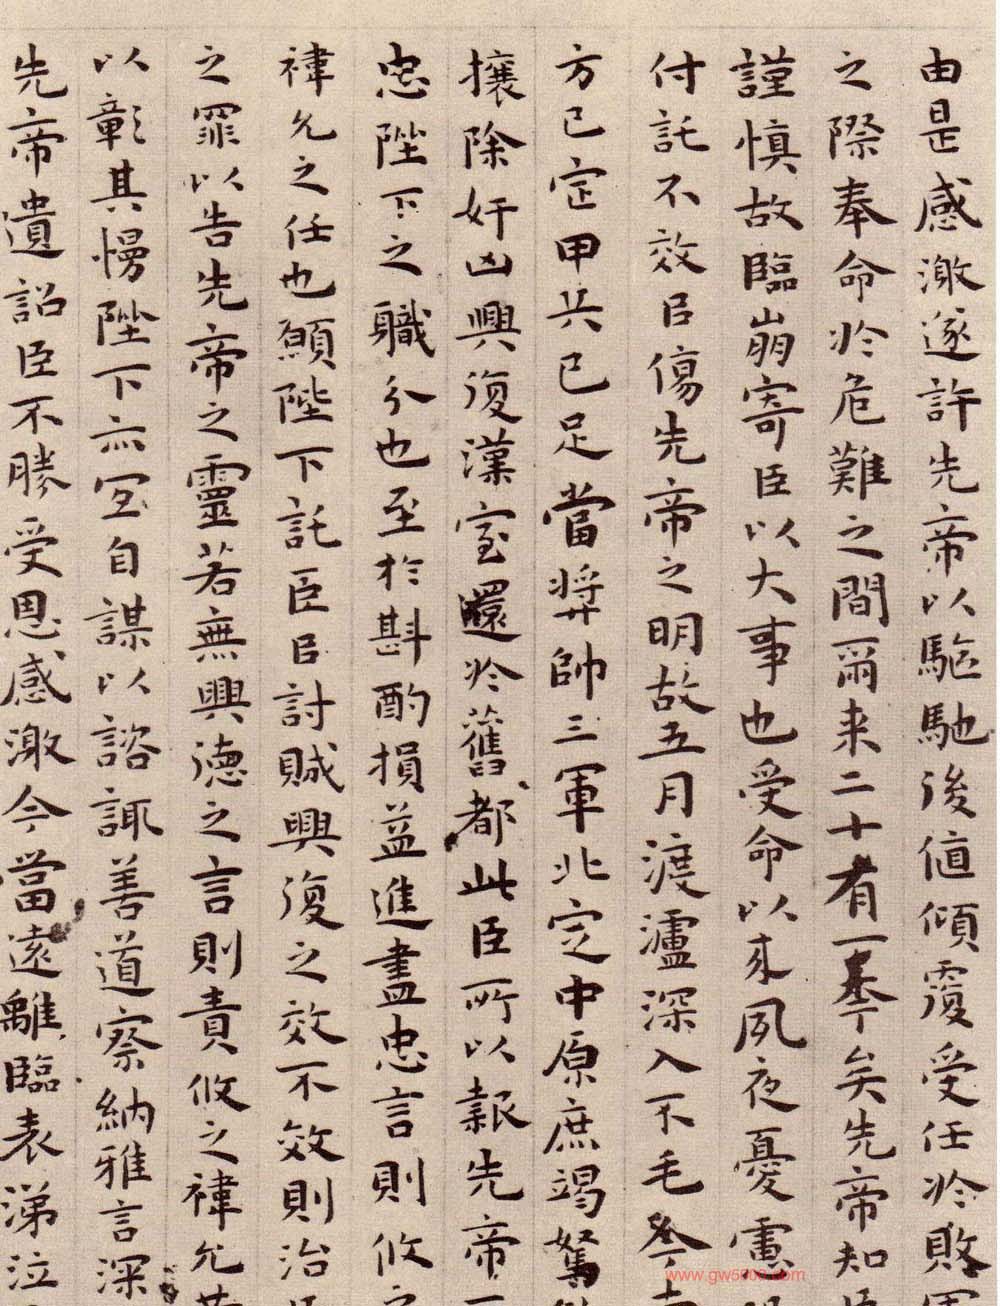 由是感激遂許先帝以駈馳後值傾覆受任於敗軍
之際奉命於危難之間爾来二十有一年矣先帝知臣
謹慎故臨崩寄臣以大事也受命以来夙夜憂慮恐
付託不效臣傷先帝之明故五月渡瀘深入不毛今南
方已定甲兵已足當奬帥三軍北定中原庶竭駑鈍
攘除奸凶興復漢室還於舊都此臣所以報先帝
忠陛下之職分也至於斟酌損益進盡忠言則攸之
禕允之任也願陛下託臣臣討賊興復之效不效則治臣
之罪以告先帝之靈若無興德之言則責攸之禕允等
以彰其慢陛下亦宜自謀以諮諏善道察納雅言深
先帝遺詔臣不勝受恩感激今當遠離臨表涕泣
www.gw5000.com